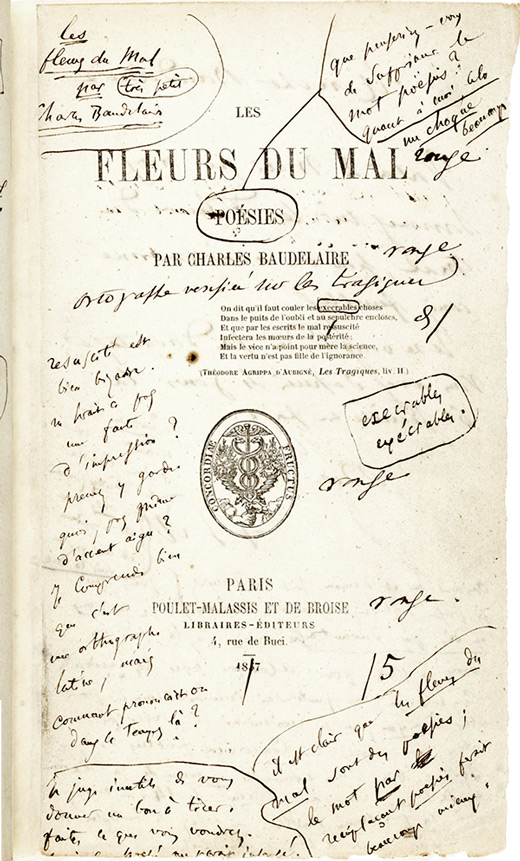 les
fleurs du Mal
par très petit
Charles Baudelaire
que penseriez-vous
de supprimer le
mot poësies?
quant à moi, cela
me choque
beaucoup
LES
FLEURS DU MAL
rouge
POÉSIES
PAR CHARLES BAUDELAIRE
rouge
ortographe vérifiée sur les tragiques
On dit qu'il faut couler les execrables choses
Dans le puits de l'oubli et au sepulchre encloses,
Et que par les escrits le mal resuscité
Infectera les mœurs de la postérité;
Mais le vice n'a point pour mère la science,
Et la vertu n'est pas fille de l'ignorance.
(THÉODORE AGRIPPA D'AUBIGNÉ, Les Tragiques, liv. II.)
resuscité est
bien bizarre.
n'y aurait-il pas
une faute
d'impression?
prenez y garde.
quoi, pas même
d'accent aigu?
Je comprends bien
que c'est
une orthographe
latine, mais
comment prononçait-on
dans le temps là?
execrables
exécrables.
CONCORDIÆ FRUCTUS
rouge
PARIS
POULET-MALASSIS ET DE BROISE
rouge.
LIBRAIRES-ÉDITEURS
4, rue de Buci.
1857
/5
il est clair que les fleurs du
mal sont des poësies;
le mot par
remplaçant poësies ferait
beaucoup mieux.
Je juge inutile de vous
donner un bon à tirer.
faites ce que vous voudrez.